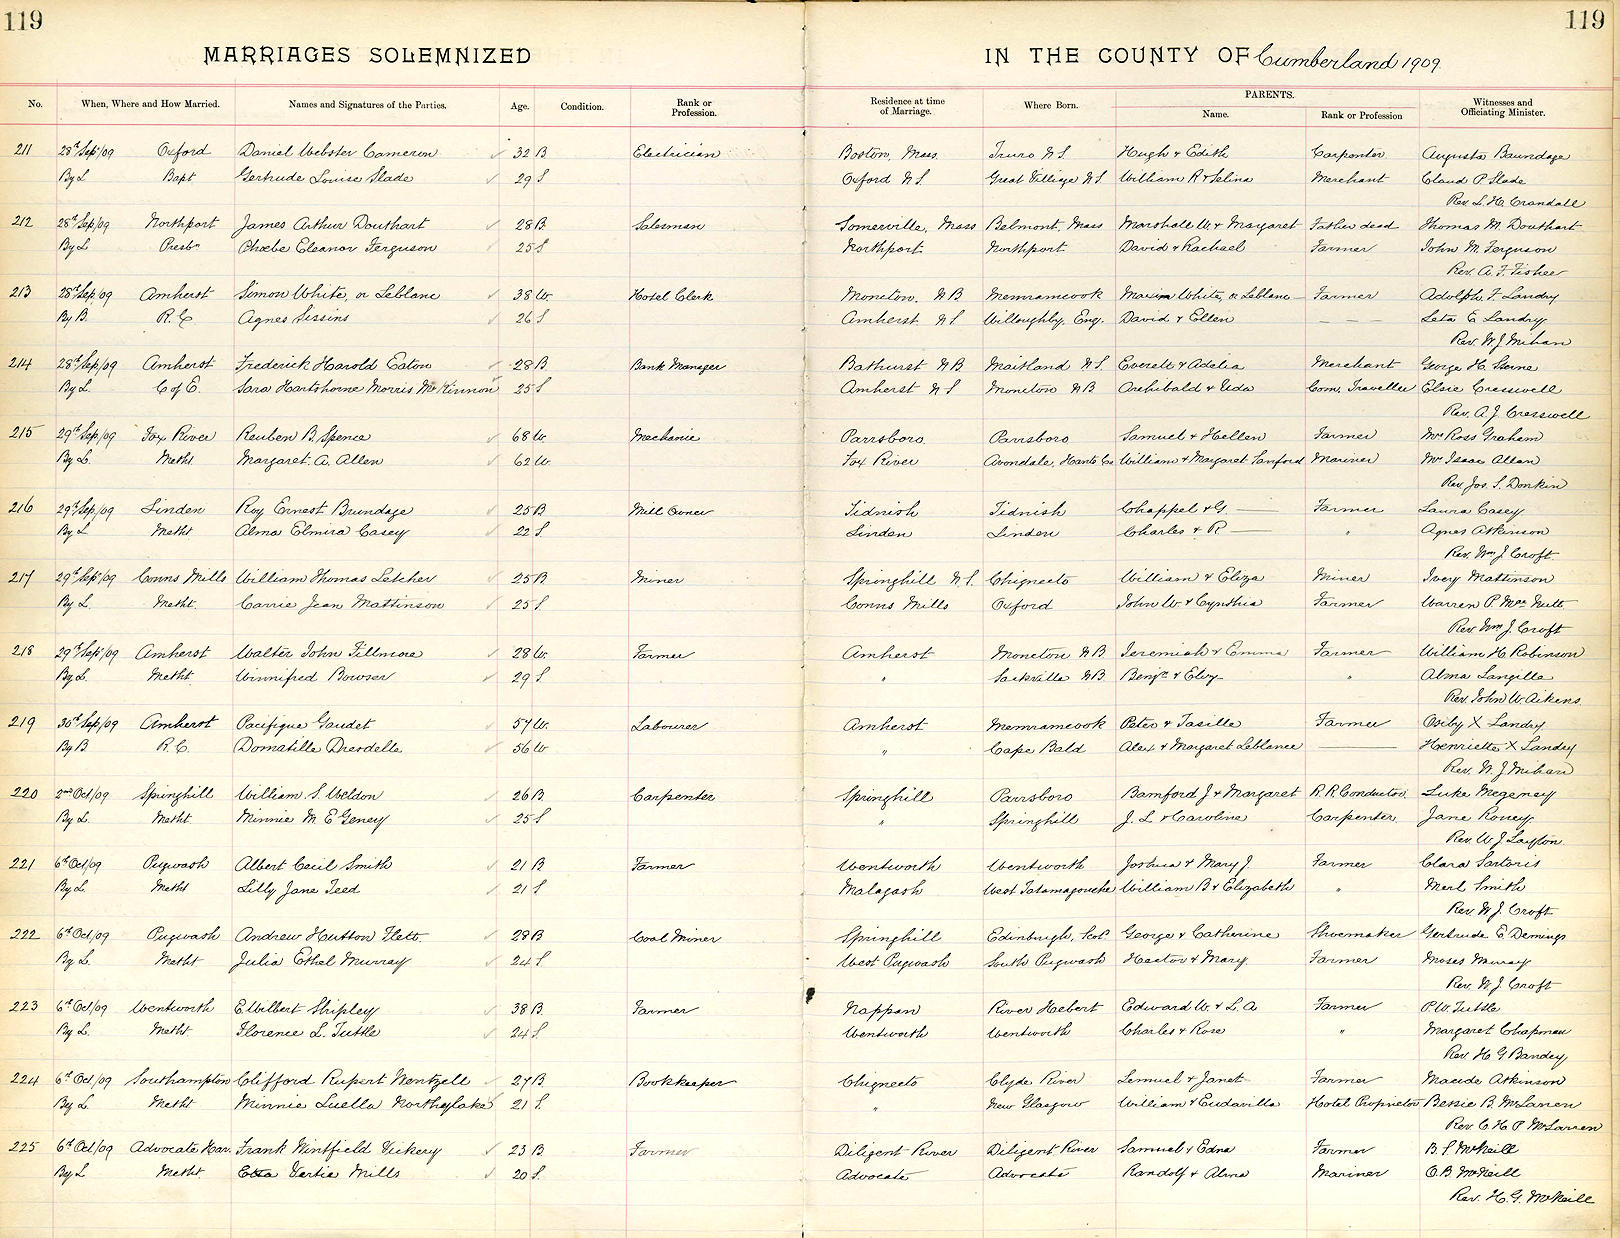 119 119
MARRIAGES SOLEMNIZED IN THE COUNTY OF Cumberland 1909.
No. When, Where and How Married. Names and Signatures of the Parties. Age. Condition. Rank or Profession. Residence at time of Marriage. Where Born. PARENTS. Name. Rank or Profession Witnesses and Officiating Minister.
211 28th Sep/09 Oxford Daniel Webster Cameron 32 B Electrician Boston, Mass. Truro N S. Hugh & Edith Carpenter Augusta Baundage
By L Bapt Gertrude Louise Slade 29 S Oxford N S. Great Village N S William R & Selina Merchant Claud P Slade
Rev. L. H. Crandall
212 28th Sep/09 Northport James Arthur Douthart 28 B. Salesman Somerville, Mass Belmont, Mass Marshall W. & Margaret Father dead Thomas M. Douthart
By L Presbn Phœbe Eleanor Ferguson 25 S Northport Northport David & Rachael Farmer John M. Ferguson
Rev. A. F. Fisher
213 28th Sep/09 Amherst Simon White, or Leblanc 38 W. Hotel Clerk Moncton, N B Memramcook Maxim White, or Leblanc Farmer Adolph. F. Landry
By B. R. C Agnes Sissins 26 S Amherst N S Willoughby, Eng. David & Ellen — — — Leta E Landry
Rev. W J Mihan
214 28th Sep/09 Amherst Frederick Harold Eaton 28 B. Bank Manager Bathurst N B Maitland N S. Everett & Adelia Merchant George H. Sterne
By L. C of E. Sara Hartshorne Morris McKinnon 25 S Amherst N S Moncton N B Archibald & Ueda Com. Traveller Elsie Cresswell
Rev. A. J. Cresswell
215 29th Sep/09 Fox River Reuben B. Spence 68 W. Mechanic Parrsboro Parrsboro Samuel & Hellen Farmer Mrs Ross Graham
By L. Metht. Margaret. A. Allen 62 W. Fox River Avondale, Hants Co William & Margaret Sanford Mariner Mr Isaac Allan
Rev. Jos. S. Donkin
216 29th Sep/09 Linden Roy Ernest Brundage 25 B Mill Owner Tidnish Tidnish Chappel & G — Farmer Laura Casey
By L Metht Alma Elmira Casey 22 S. Linden Linden Charles & R — " Agnes Atkinson
Rev. Wm J Croft
217 29th Sep/09 Conns Mills William Thomas Letcher 25 B Miner Springhill N S. Chignecto William & Eliza Miner Ivey Mattinson
By L. Metht. Carrie Jean Mattinson 25 S. Conns Mills Oxford John W. & Cynthia Farmer Warren P.
Rev Wm J. Croft
218 29th Sep/09 Amherst Walter John Fillmore 28 W. Farmer Amherst Moncton N B Jeremiah & Emma Farmer William H. Robinson
By L. Metht. Winnifred Bowser 29 S. " Sackville N B. Benjn & Elvy " Alma Langille
Rev. John W. Aikens
219 30th Sep/09 Amherst Pacifique Gaudet 57 W. Labourer Amherst Memramcook Peter & Tasille Farmer X Landry
By B R. C. Domatille 56 W " Cape Bald Alex & Margaret Leblance — Henriette X Landry
Rev. W. J Mihan
220 2nd Oct/09 Springhill William. S. Weldon 26 B Carpenter Springhill Parrsboro Bamford J & Margaret R. R. Conductor Luke Megeney
By L. Metht. Minnie M. E Geney 25 S " Springhill J. L & Caroline Carpenter. Jane Roney
Rev. W J. Layton
221 6th Oct/09 Pugwash Albert Cecil Smith 21 B Farmer Wentworth Wentworth Joshua & Mary J Farmer Clara Sartoris
By L Metht Lilly Jane Teed 21 S Malagash West Tatamagouche William B & Elizabeth " Merl Smith
Rev. W J. Croft
222 6th Oct/09 Pugwash Andrew Hutton 28 B Coal Miner Springhill Edinburgh, Scot. George & Catherine Shoemaker Gertrude E. Demings
By L. Metht Julia Ethel Murray 24 S. West Pugwash South Pugwash Hector & Mary Farmer Moses Murray
Rev. W J. Croft
223 6th Oct/09 Wentworth Elbilbert Shipley 38 B. Farmer Nappan River Hebert Edward W. & L. A Farmer P. W. Tuttle
By L. Metht. Florence L. Tuttle 24 S. Wentworth Wentworth Charles & Rose " Margaret Chapman
Rev. H G Bandey
224 6th Oct/09 Southampton Clifford Rupert Wentzell 27 B. Bookkeeper Chignecto Clyde River Lemuel & Janet Farmer Maude Atkinson
By L. Metht Minnie Luella Northeylake 21 S. " New Glasgow William & Eudavilla Hotel Proprietor Bessie B. McLaren
Rev. C. H. P. McLarren
225 6th Oct/09 Advocate Har. Frank Wintfield Vickery 23 B Farmer Diligent River Diligent River Samuel & Edna Farmer B. S McNeill
By L Metht. Etta Vertie Mills 20 S. Advocate Advocate Randolf & Alma Mariner O. B. McNeill
Rev. H. G. McNeill